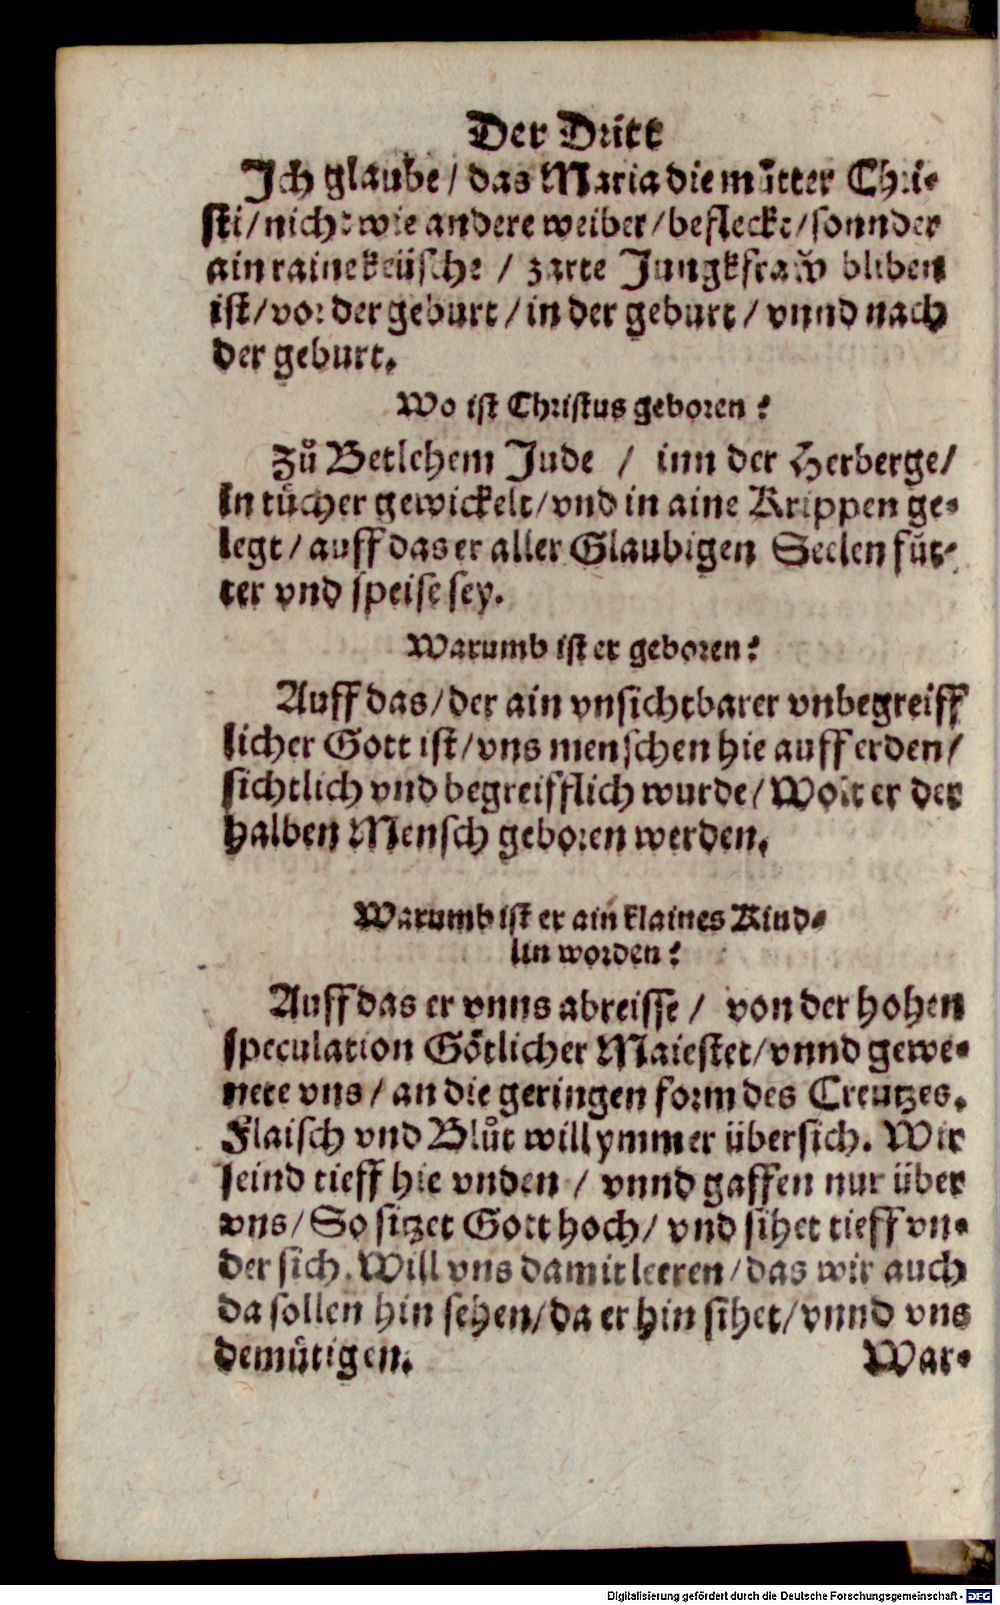 Der Dritt
Ich glaube / das Maria die můtter Chri-
sti / nicht wie andere weiber / befleckt / sonnder
ain raine keüsche / zarte Jungkfraw bliben
ist / vor der geburt / in der geburt / vnnd nach
der geburt.
Wo ist Christus geboren?
Zů Betlehem Jude / inn der Herberge /
In tücher gewickelt / vnd in aine Krippen ge-
legt / auff das er aller Glaubigen Seelen fůt-
ter vnd speise sey.
Warumb ist er geboren?
Auff das / der ain vnsichtbarer vnbegreiff
licher Gott ist / vns menschen hie auff erden /
sichtlich vnd begreifflich wurde / Wolt er der
halben Mensch geboren werden.
Warumb ist er ain klaines Kind-
lin worden?
Auff das er vnns abreisse / von der hohen
speculation Götlicher Maiestet / vnnd gewe-
nete vns / an die geringen form des Creutzes.
Flaisch vnd Blůt will ymmer übersich. Wir
seind tieff hie vnden / vnnd gaffen nur über
vns / So sitzet Gott hoch / vnd sihet tieff vn-
der sich. Will vns damit leeren / das wir auch
da sollen hin sehen / da er hin sihet / vnnd vns
demütigen.
War-
Digitalisierung gefördert durch die Deutsche Forschungsgemeinschaft - DFG